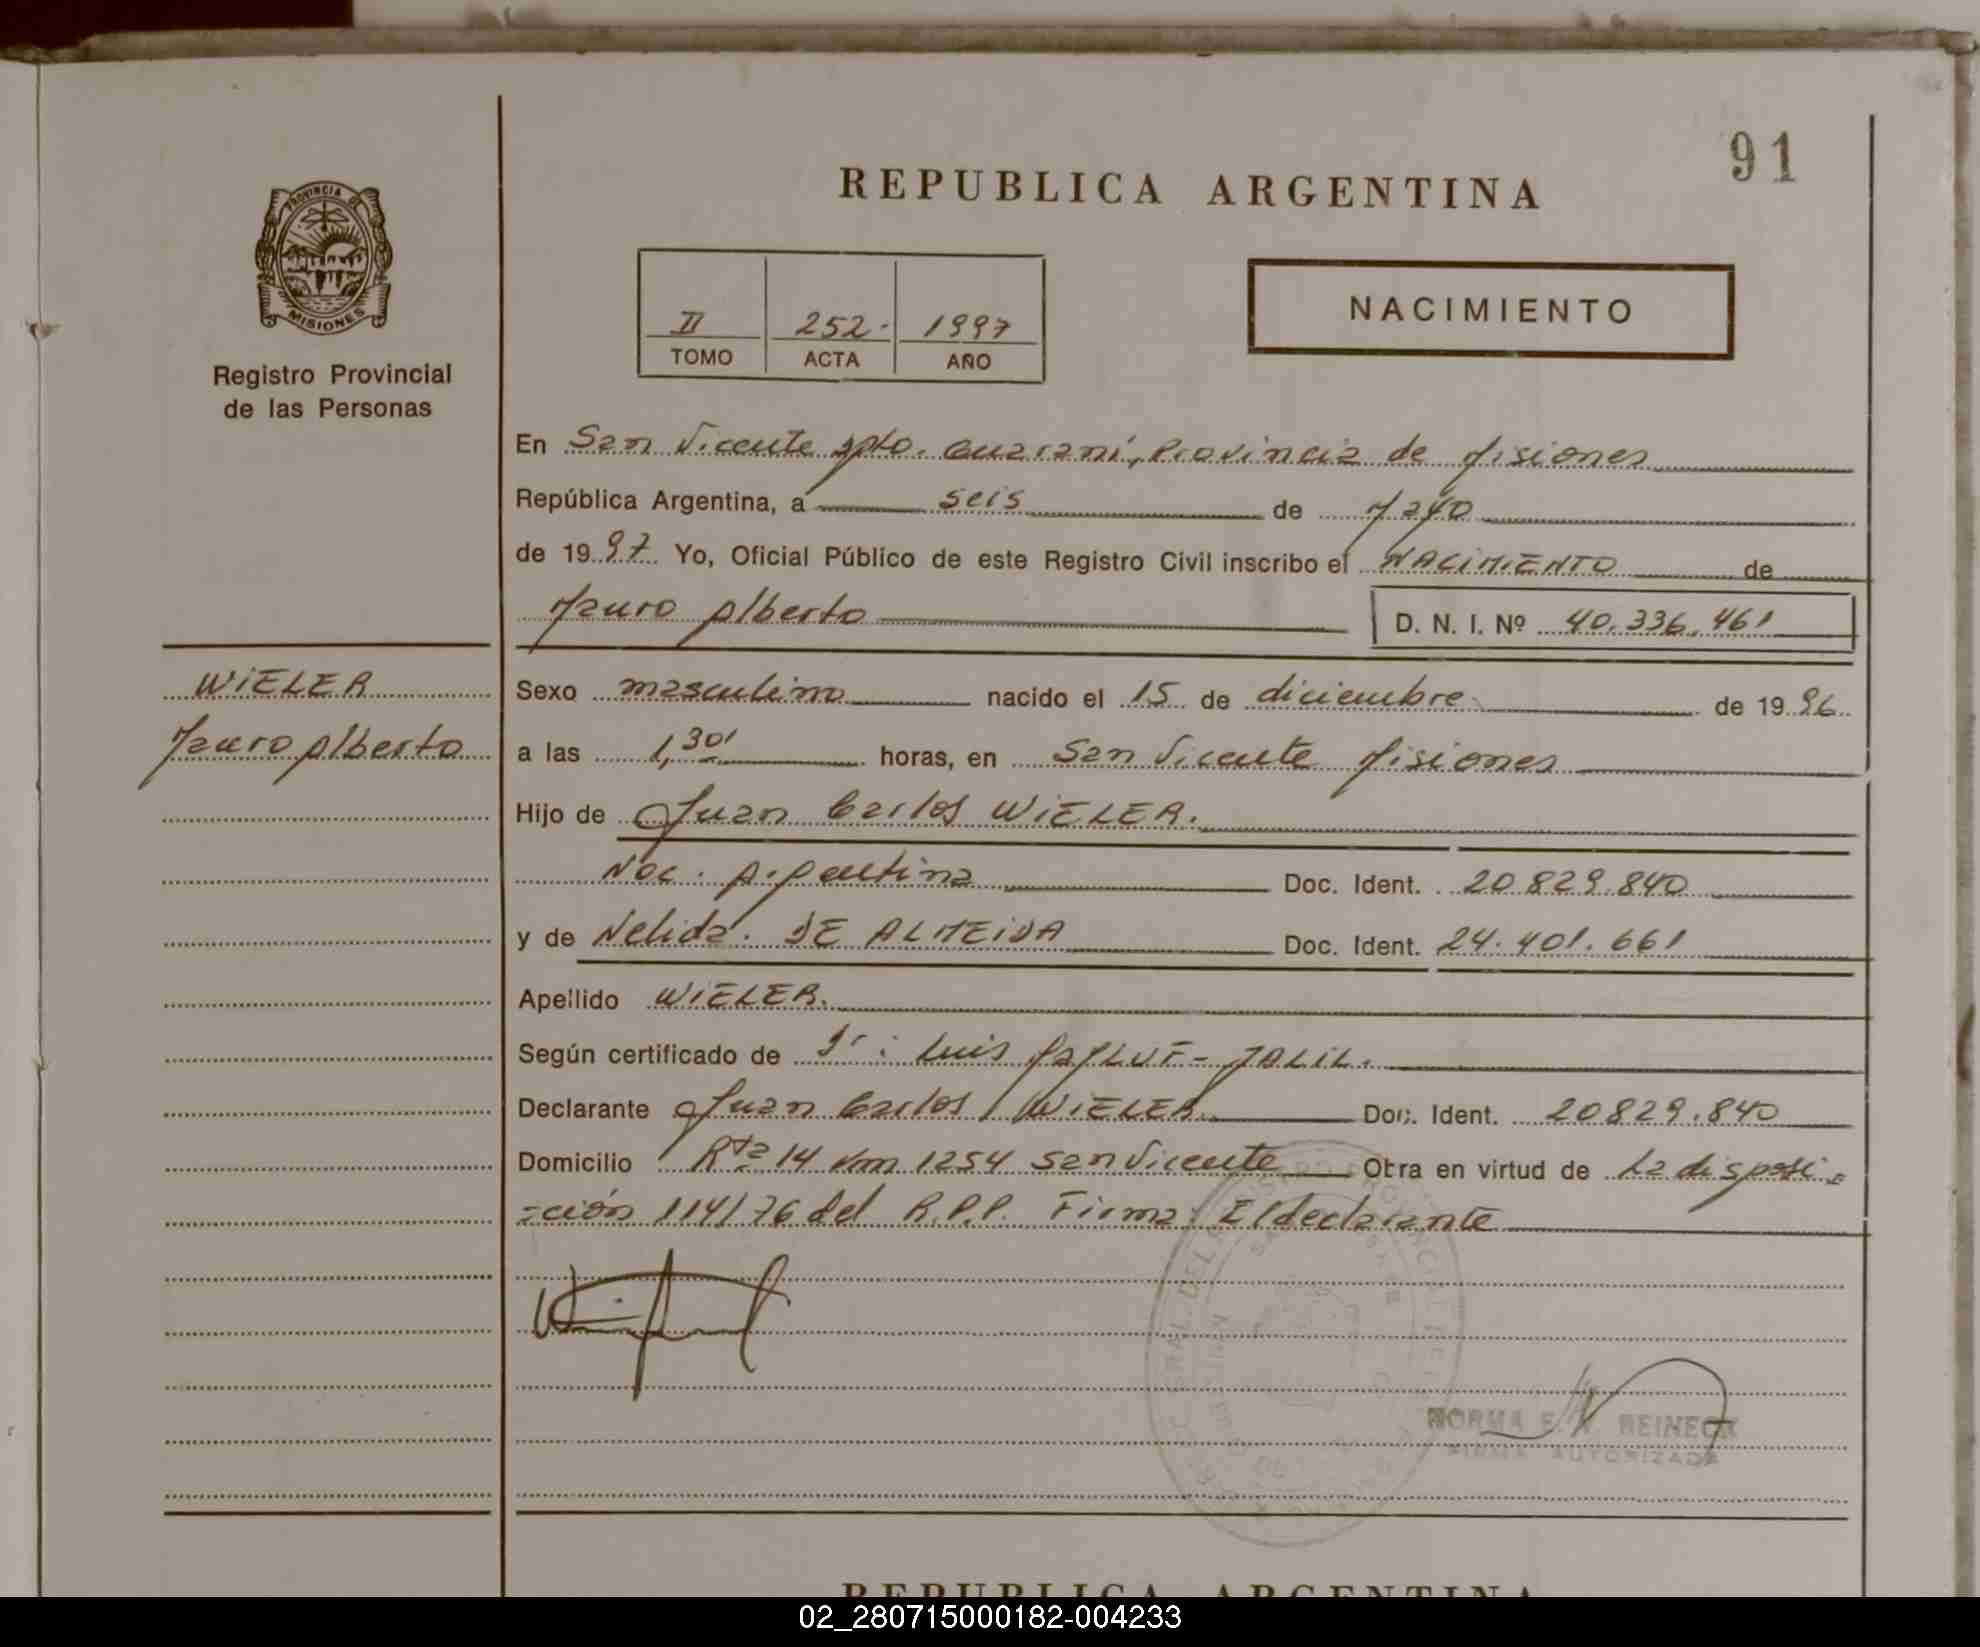 91
REPUBLICA ARGENTINA
PROVINCIA DE
MISIONES
Registro Provincial
de las Personas
II 252 1997
TOMO ACTA AÑO
NACIMIENTO
En San Vicente Dpto. Guaraní, Provincia de Misiones
República Argentina, a seis de Mayo
de 1997 Yo, Oficial Público de este Registro Civil inscribo el NACIMIENTO de
Mauro Alberto D. N. I. Nº 40.336.461
WIELER
Mauro Alberto
Sexo masculino nacido el 15 de diciembre de 1996
a las 1,30' horas, en San Vicente Misiones
Hijo de Juan Carlos WIELER.
Nac. Argentina Doc. Ident. 20.829.840
y de Nelida. DE ALMEIDA Doc. Ident. 24.401.661
Apellido WIELER.
Según certificado de Dr: Luis JALIL.
Declarante Juan Carlos WIELER Doc. Ident. 20829.840
Domicilio Rta 14 Km 1254 San Vicente Otra en virtud de La disposi=
=ción 114/76 del R.P.P. Firma: El declarante
NORMA E. REINECK
FIRMA AUTORIZADA
REPUBLICA ARGENTINA
02_280715000182-004233